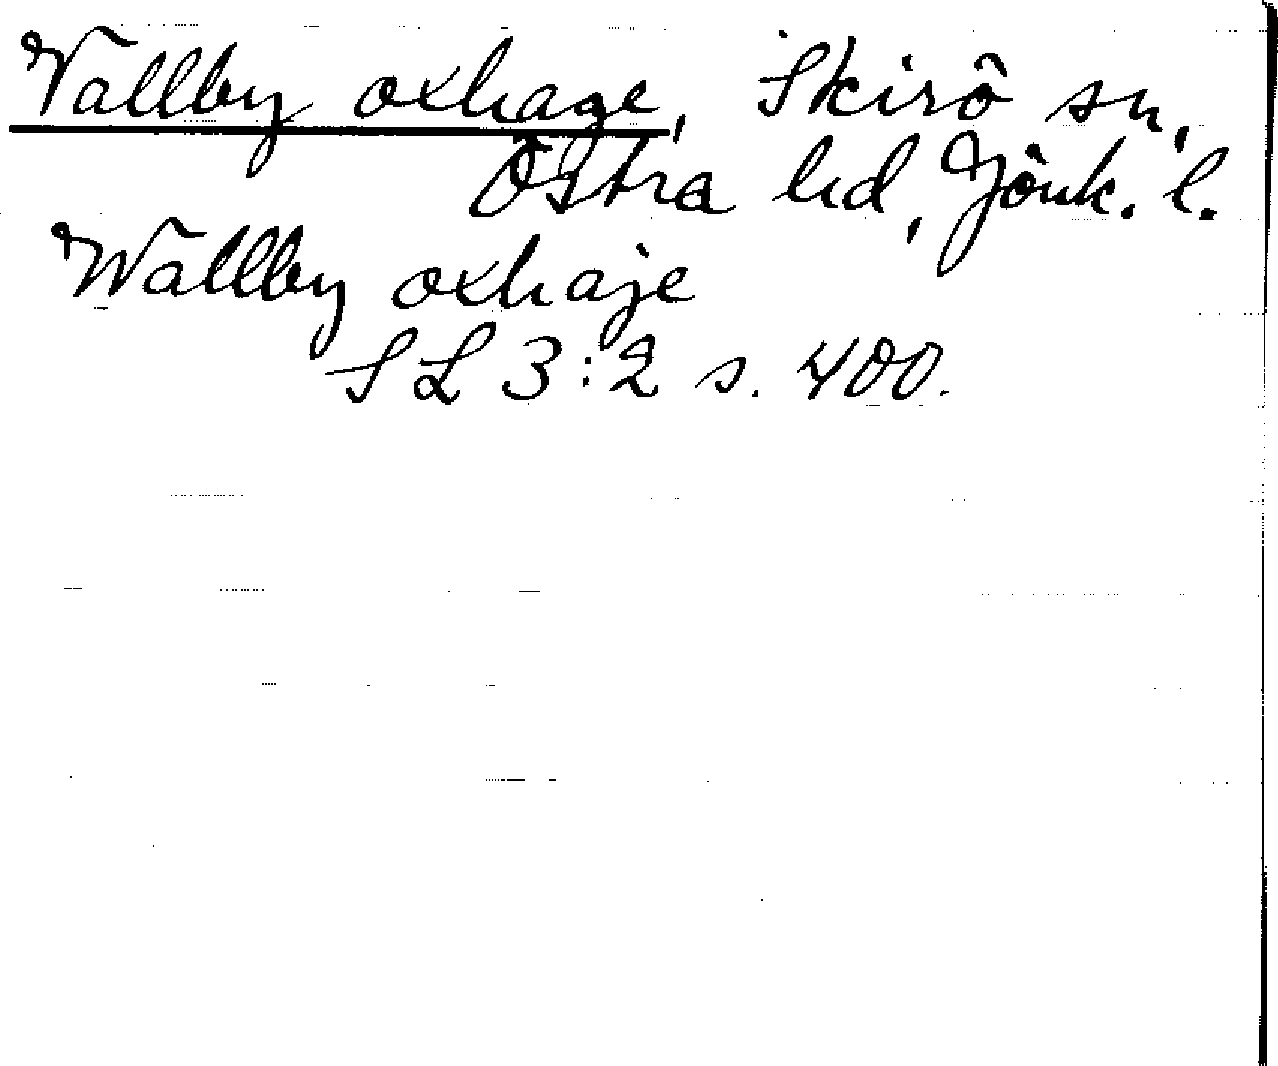 Vallby oxhage, Skirö sn,
Östra hd, Jönk. l.
Wallby oxhaje
SL 3:2 s. 400.